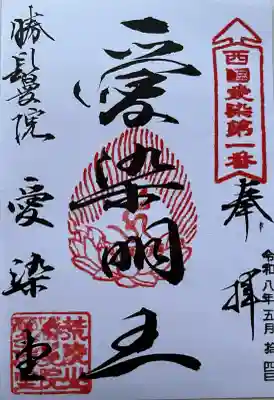 西国愛染第一番
奉拝
令和八年五月拾四日
愛染明王
勝鬘院
愛染堂